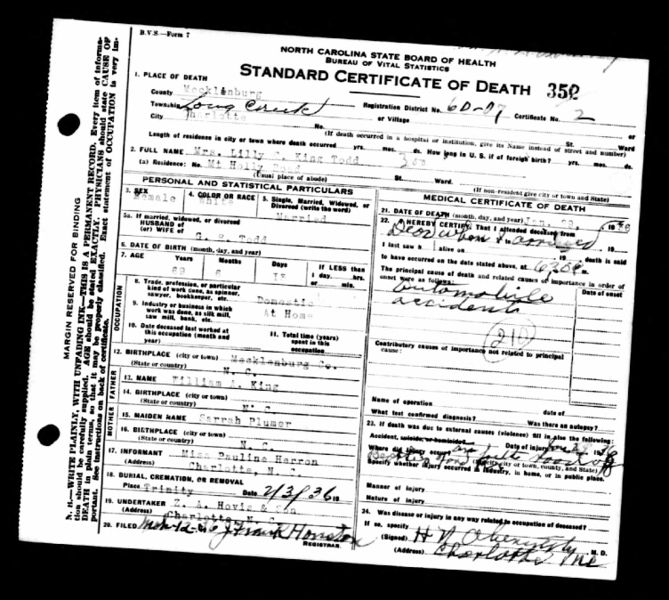 B.V.S—Form 7
NORTH CAROLINA STATE BOARD OF HEALTH
BUREAU OF VITAL STATISTICS
STANDARD CERTIFICATE OF DEATH 350
1. PLACE OF DEATH
County Mecklenburg
Registration District No. 60-07 Certificate No. 2
Township Long Creek or Village
City Charlotte No. St. Ward
(If death occurred in a hospital or institution, give its Name instead of street and number)
Length of residence in city or town where death occurred yrs. mos. ds. How long in U. S. if of foreign birth? yrs. mos. ds.
2. FULL NAME Mrs. Lilly King Todd
(a) Residence: No. Mt Holly St. Ward.
(Usual place of abode) (If non-resident give city or town and State)
PERSONAL AND STATISTICAL PARTICULARS
3. SEX
Female
4. COLOR OR RACE
White
5. Single, Married, Widowed, or Divorced (write the word)
Married
5a. If married, widowed, or divorced
HUSBAND of
(or) WIFE of G. Todd
6. DATE OF BIRTH (month, day, and year)
7. AGE Years Months Days IF LESS than
1 day, hrs.
or min.
8. Trade, profession, or particular
kind of work done, as spinner,
sawyer, bookkeeper, etc. Domestic
9. Industry or business in which
work was done, as silk mill,
saw mill, bank, etc. At Home
10. Date deceased last worked at
this occupation (month and
year)
11. Total time (years)
spent in this
occupation
OCCUPATION
12. BIRTHPLACE (city or town) Mecklenburg Co.
(State or country) N. C.
FATHER
13. NAME William A. King
14. BIRTHPLACE (city or town)
(State or country) N. C.
MOTHER
15. MAIDEN NAME Sarrah Plumer
16. BIRTHPLACE (city or town)
(State or country) N. C.
17. INFORMANT Miss Pauline Herron
(Address) Charlotte, N. C.
18. BURIAL, CREMATION, OR REMOVAL
Place Trinity 2/3/36 19
19. UNDERTAKER Z. A. Hovis & Son
(Address) Charlotte
20. FILED J Frank Houston
REGISTRAR.
MEDICAL CERTIFICATE OF DEATH
21. DATE OF DEATH (month, day, and year) Jan.
22. I HEREBY CERTIFY, That I attended deceased from
Dead when I arrived
I last saw h alive on death is said
to have occurred on the date stated above, at
The principal cause of death and related causes of importance in order of
onset were as follows: Date of onset
Automobile
accident
210
Contributory causes of importance not related to principal
cause:
Name of operation
What test confirmed diagnosis? Was there an autopsy?
23. If death was due to external causes (violence) fill in also the following:
Accident, suicide, or homicide
Where did injury occur?
(Specify city or town, county, and State)
Specify whether injury occurred in industry, in home, or in public place.
Manner of injury
Nature of injury
24. Was disease or injury in any way related to occupation of deceased?
If so, specify
(Signed) M. D.
(Address) Charlotte NC
MARGIN RESERVED FOR BINDING
N. B.—WRITE PLAINLY, WITH UNFADING INK—THIS IS A PERMANENT RECORD. Every item of information should be carefully supplied. AGE should be stated EXACTLY. PHYSICIANS should state CAUSE OF DEATH in plain terms, so that it may be properly classified. Exact statement of OCCUPATION is very important. See instructions on back of certificate.